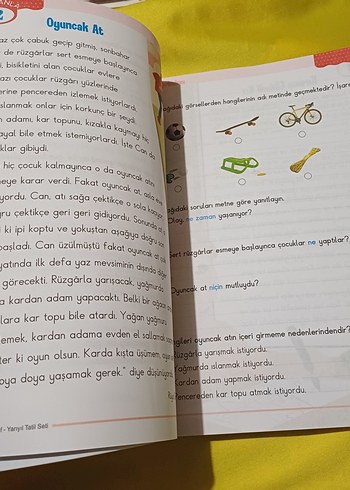 Oyuncak At
az çok çabuk geçip gitmiş, sonbahar
de rüzgârlar sert esmeye başlayınca
bisikletini alan çocuklar evlere
azı çocuklar rüzgârı yüzlerinde
erine pencereden izlemek istiyorlardı.
slanmak onlar için korkunç bir şeydi.
n adam, kar topunu, kızakla kaymayı hiç
ayal bile etmek istemiyorlardı. İşte Can da
klar gibiydi.
hiç çocuk kalmayınca o da oyuncak atın
meye karar verdi. Fakat oyuncak at, asla eve
yordu. Can, atı sağa çektikçe o sola kaçıyor
ru çektikçe geri geri gidiyordu. Sonunda
ki ipi koptu ve yokuştan aşağıya doğru
başladı. Can üzülmüştü fakat oyuncak at
yatında ilk defa yaz mevsiminin dışında
görecekti. Rüzgârla yarışacak, yağmurda
a kardan adam yapacaktı. Belki bir ağaca
lara kar topu bile atardı. Yağan yağmuru
emek, kardan adama evden el sallamak
ter ki oyun olsun. Karda kışta üşümem,
oya doya yaşamak gerek." diye düşünüyordu
f - Yarıyıl Tatil Seti
ağıdaki görsellerden hangilerinin adı metinde geçmektedir? İşare
ağıdaki soruları metne göre yanıtlayın.
Olay, ne zaman yaşanıyor?
Sert rüzgârlar esmeye başlayınca çocuklar ne yaptılar?
Oyuncak at niçin mutluydu?
ngileri oyuncak atın içeri girmeme nedenlerindendir?
Rüzgârla yarışmak istiyordu.
Yağmurda ıslanmak istiyordu.
Kardan adam yapmak istiyordu.
Pencereden kar topu atmak istiyordu.